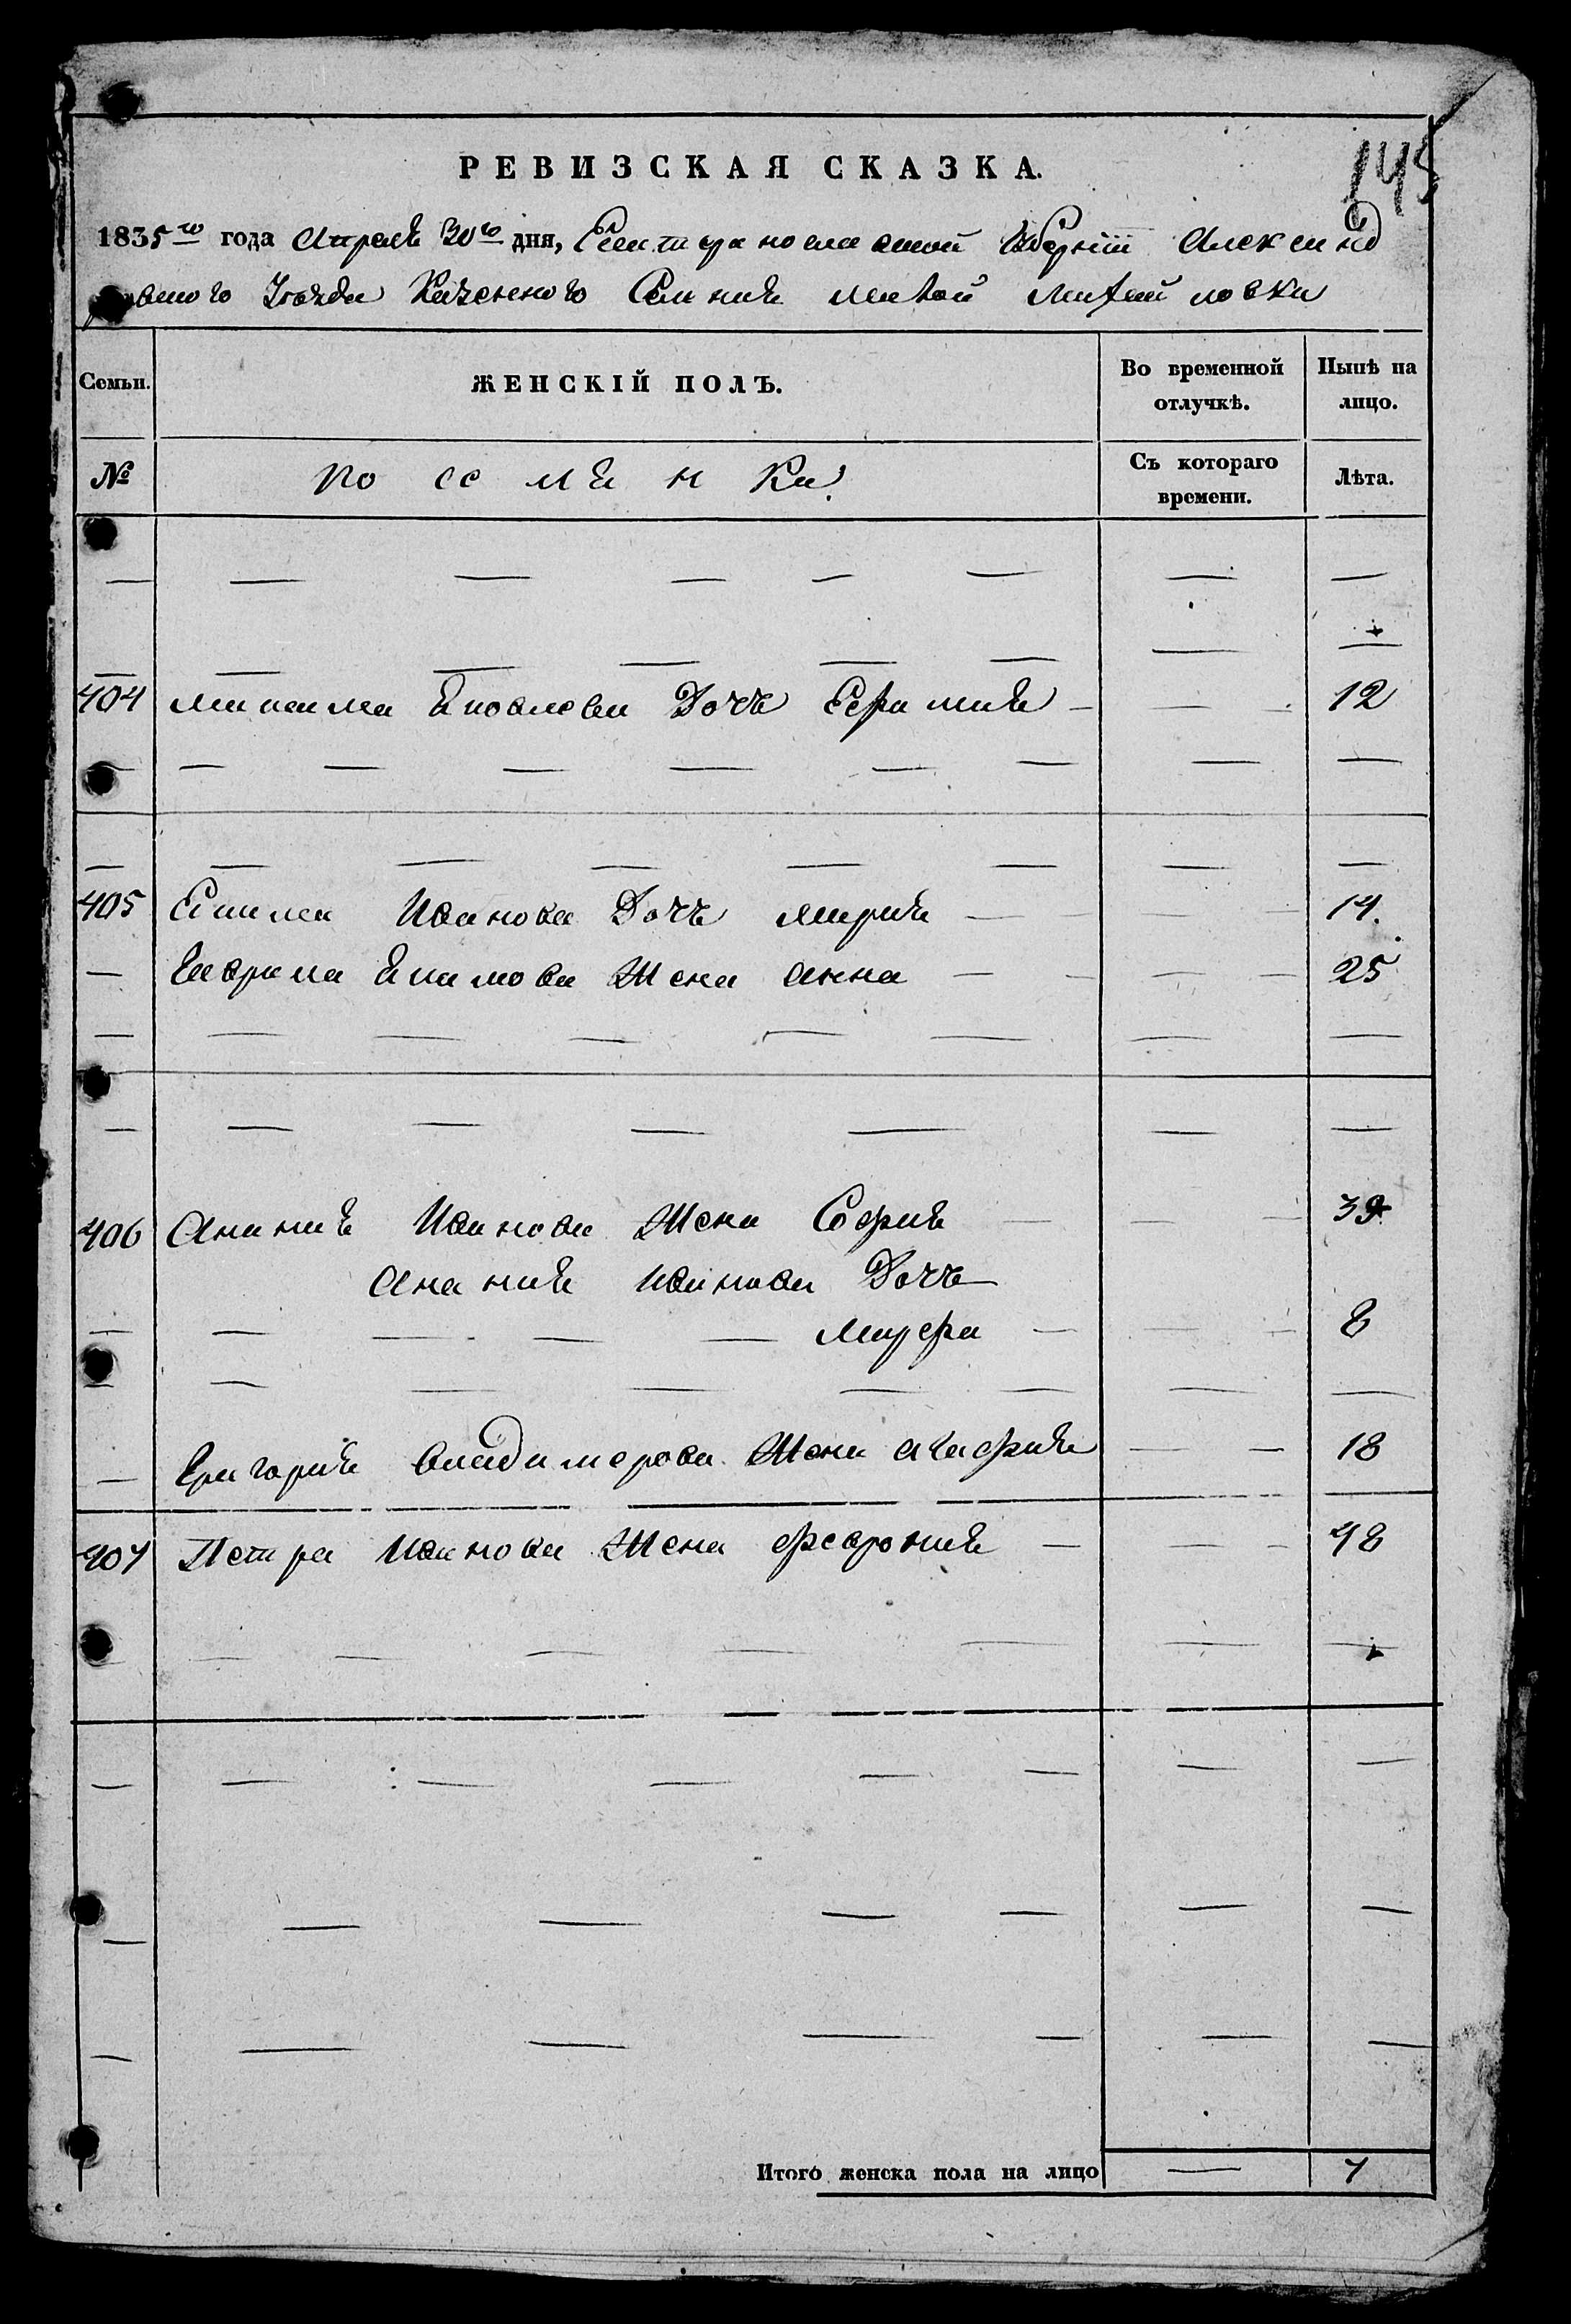 145
РЕВИЗСКАЯ СКАЗКА.
1835го года Апреля 30го дня, Екатеринославской Губернiи Александ
ровского Уезда Казенного Селения Михайловки
Семьи. ЖЕНСКІЙ ПОЛЪ. Во временной отлучкѣ. Нынѣ на лицо.
№ Съ котораго времени. Лѣта.
404 Максима Яковлева Дочь 12
405 Екима Иванова Дочь Мария 14.
Гаврила Екимова Жена Анна 25
406 Анания Иванова Жена София 39
Анания Иванова Дочь
Марфа 8
Григория Владимерова Жена Агафия 18
407 Петра Иванова Жена Феврония 48
Итого женска пола на лицо 7